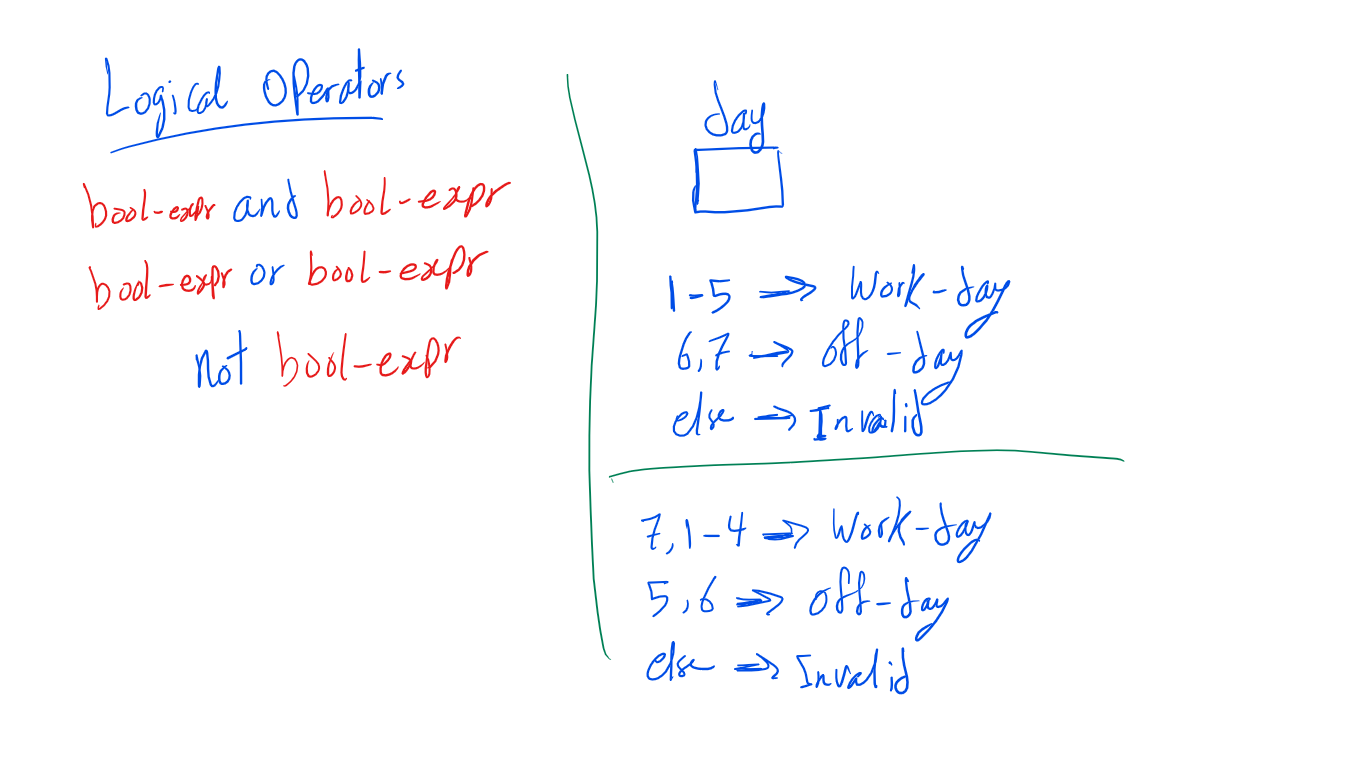 Logical Operators
bool-expr and bool-expr
bool-expr or bool-expr
not bool-expr
day
1-5 ⇒ Work-day
6,7 → off-day
else → Invalid
7,1-4 ⇒ Work-day
5,6 ⇒ off-day
else ⇒ Invalid